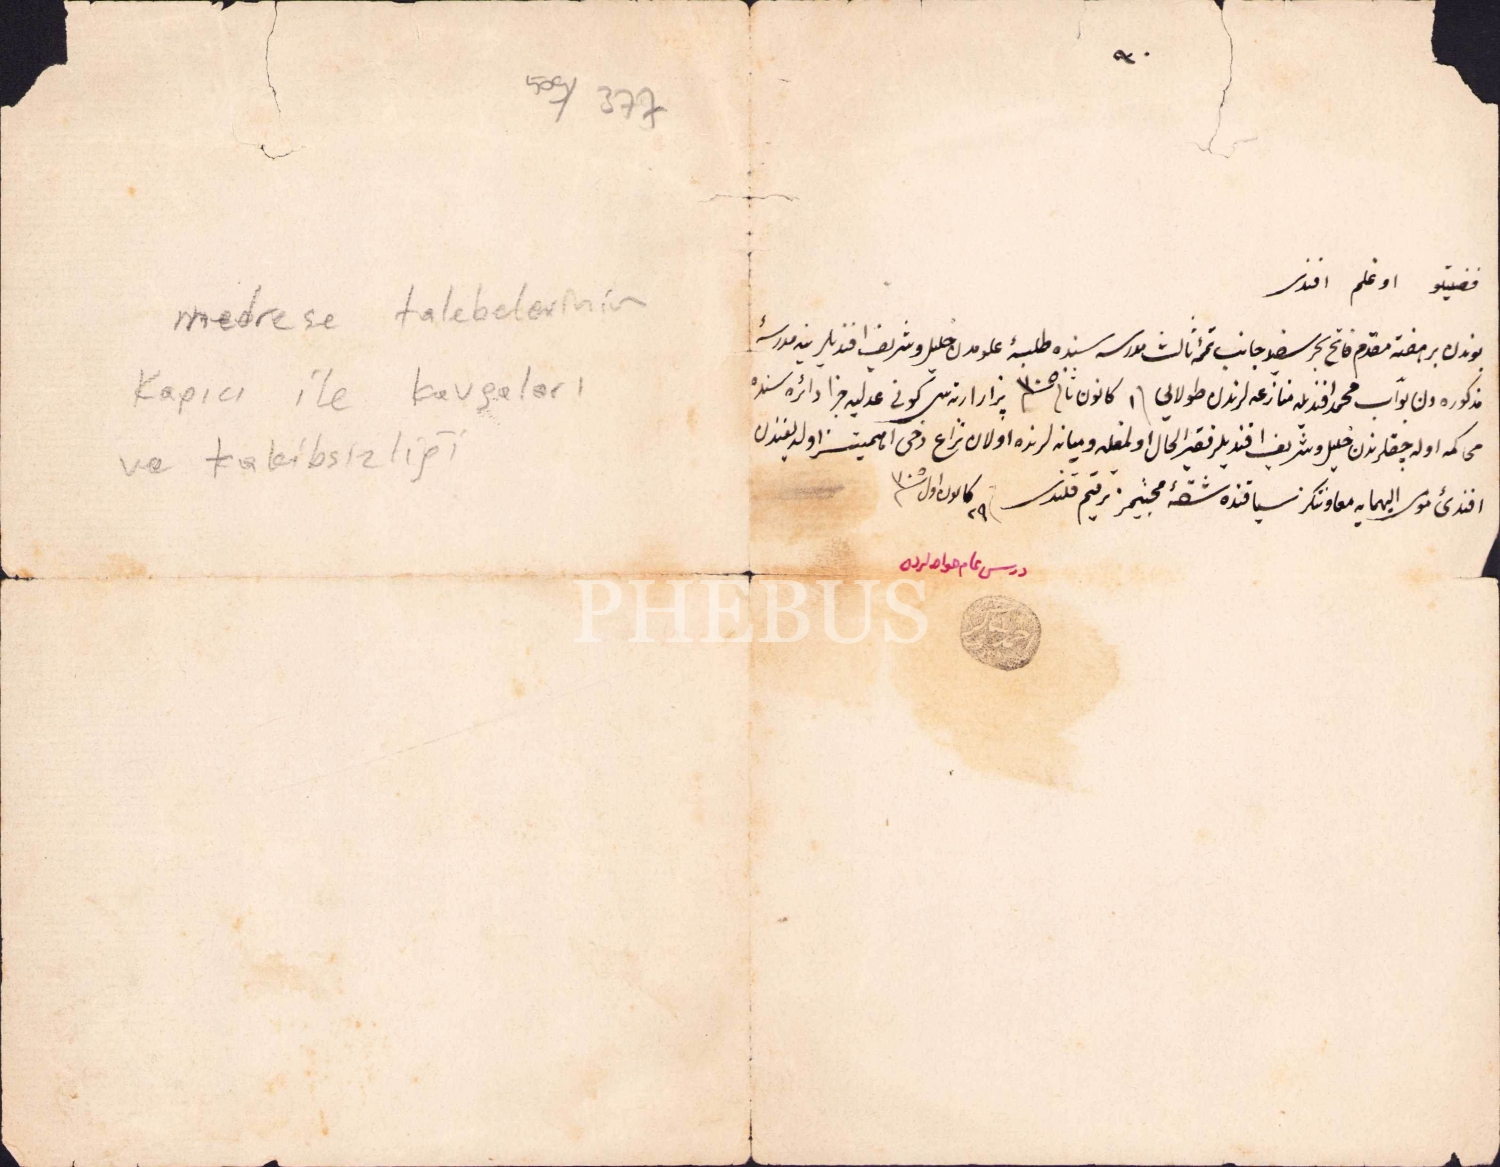 509/ 377
medrese talebelerinin
Kapıcı ile kavgaları
ve takibsizliği
فضيلتلو اوغلم افندی
بوندن بر هفته مقدم فاتح بحر سفيد جانب تتمهٔ ثالث مدرسه سنده طلبهٔ علومدن خليل و شريف افنديلر ينه مدرسهٔ
مذكوره دن بواب محمد افنديله منازعه لرندن طولايی ١ كانون ثانی ٣٠٥ پزار ايرتسی كونی عدليه جزا دائره سنده
محاكمه اوله جقلرندن خليل و شريف افنديلر فقير الحال اولمغله و ميانه لرنده اولان نزاع دخی اهميتسز اولديغندن
افندیٔ مومی اليهمايه معاونتكز سياقنده شقهٔ محبتيمز ترقيم قلندی ٢٩ كانون اول ٣٠٥
PHEBUS